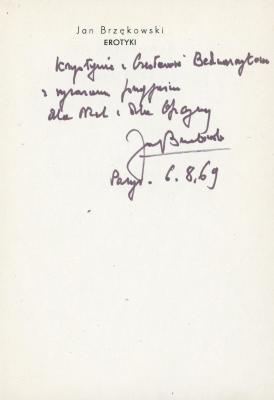 Jan Brzękowski
EROTYKI
Krystynie i Czesławowi Bednarczykom
z wyrazami przyjaźni
dla Nich i dla Oficyny
Jan Brzękowski
Paryż. 6.8.69